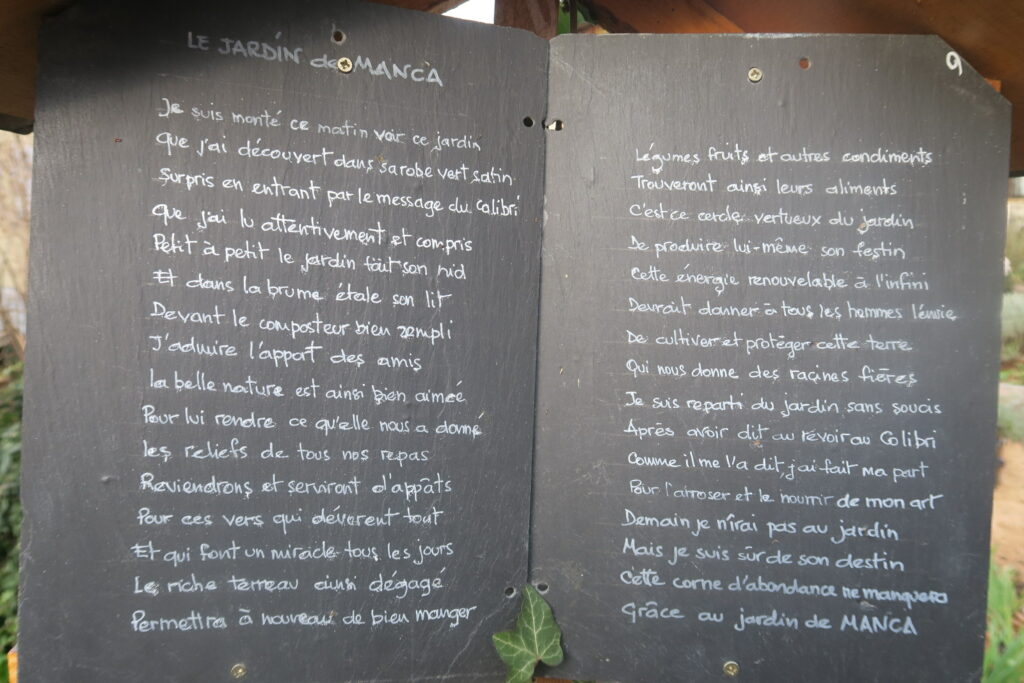 LE JARDIN de MANCA
Je suis monté ce matin voir ce jardin
Que j'ai découvert dans sa robe vert satin
Surpris en entrant par le message du Colibri
Que j'ai lu attentivement et compris
Petit à petit le jardin fait son nid
Et dans la brume étale son lit
Devant le composteur bien rempli
J'admire l'appat des amis
la belle nature est ainsi bien aimée
Pour lui rendre ce qu'elle nous a donné
les reliefs de tous nos repas
Reviendrons et serviront d'appâts
Pour ces vers qui dévorent tout
Et qui font un miracle tous les jours
Le riche terreau ainsi dégagé
Permettra à nouveau de bien manger
9
Légumes fruits et autres condiments
Trouveront ainsi leurs aliments
C'est ce cercle vertueux du jardin
De produire lui-même son festin
Cette énergie renouvelable à l'infini
Devrait donner à tous les hommes l'envie
De cultiver et protéger cette terre
Qui nous donne des racines fières
Je suis reparti du jardin sans soucis
Après avoir dit au révoir au Colibri
Comme il me l'a dit, j'ai fait ma part
Pour l'arroser et le nourrir de mon art
Demain je n'irai pas au jardin
Mais je suis sûr de son destin
Cette corne d'abondance ne manquera
Grâce au jardin de MANCA